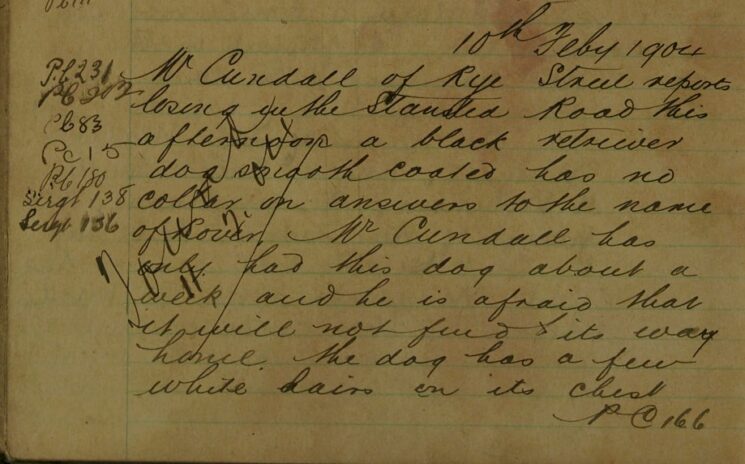 10th Feby 1904
P.C 231 Mr Cundall of Rye Street reports
PC 202 losing in the Stansted Road this
PC 83 afternoon a black retriever
PC 15 dog smooth coated has no
PC 180 collar on answers to the name
Sergt 138 of Rover, Mr Cundall has
Sergt 136 only had this dog about a
week and he is afraid that
it will not find its way
home. the dog has a few
white hairs on its chest
P C 166
Found
11/2/04